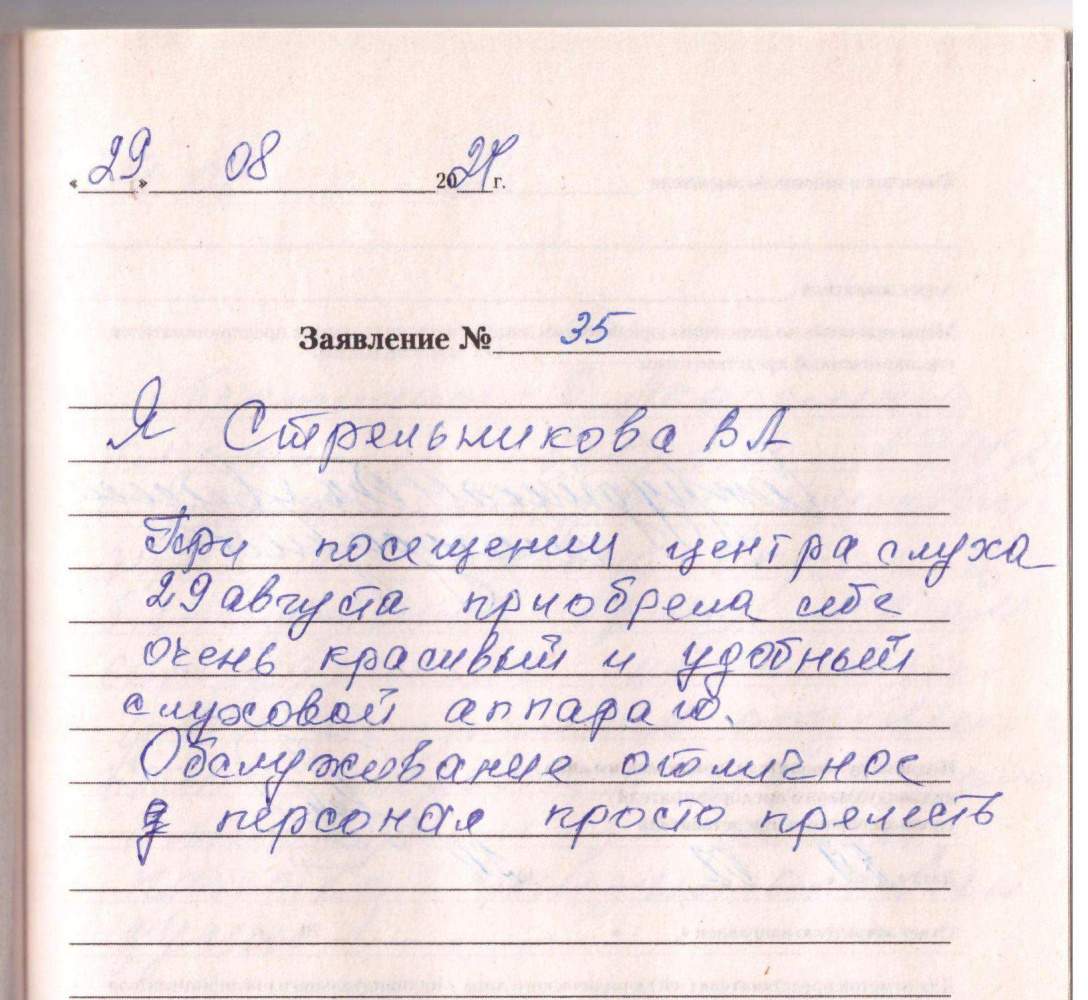 «29» 08 2024 г.
Заявление № 35
Я Стрельникова В А
При посещении центра слуха
29 августа приобрела себе
очень красивый и удобный
слуховой аппарат.
Обслуживание отличное
персонал просто прелесть